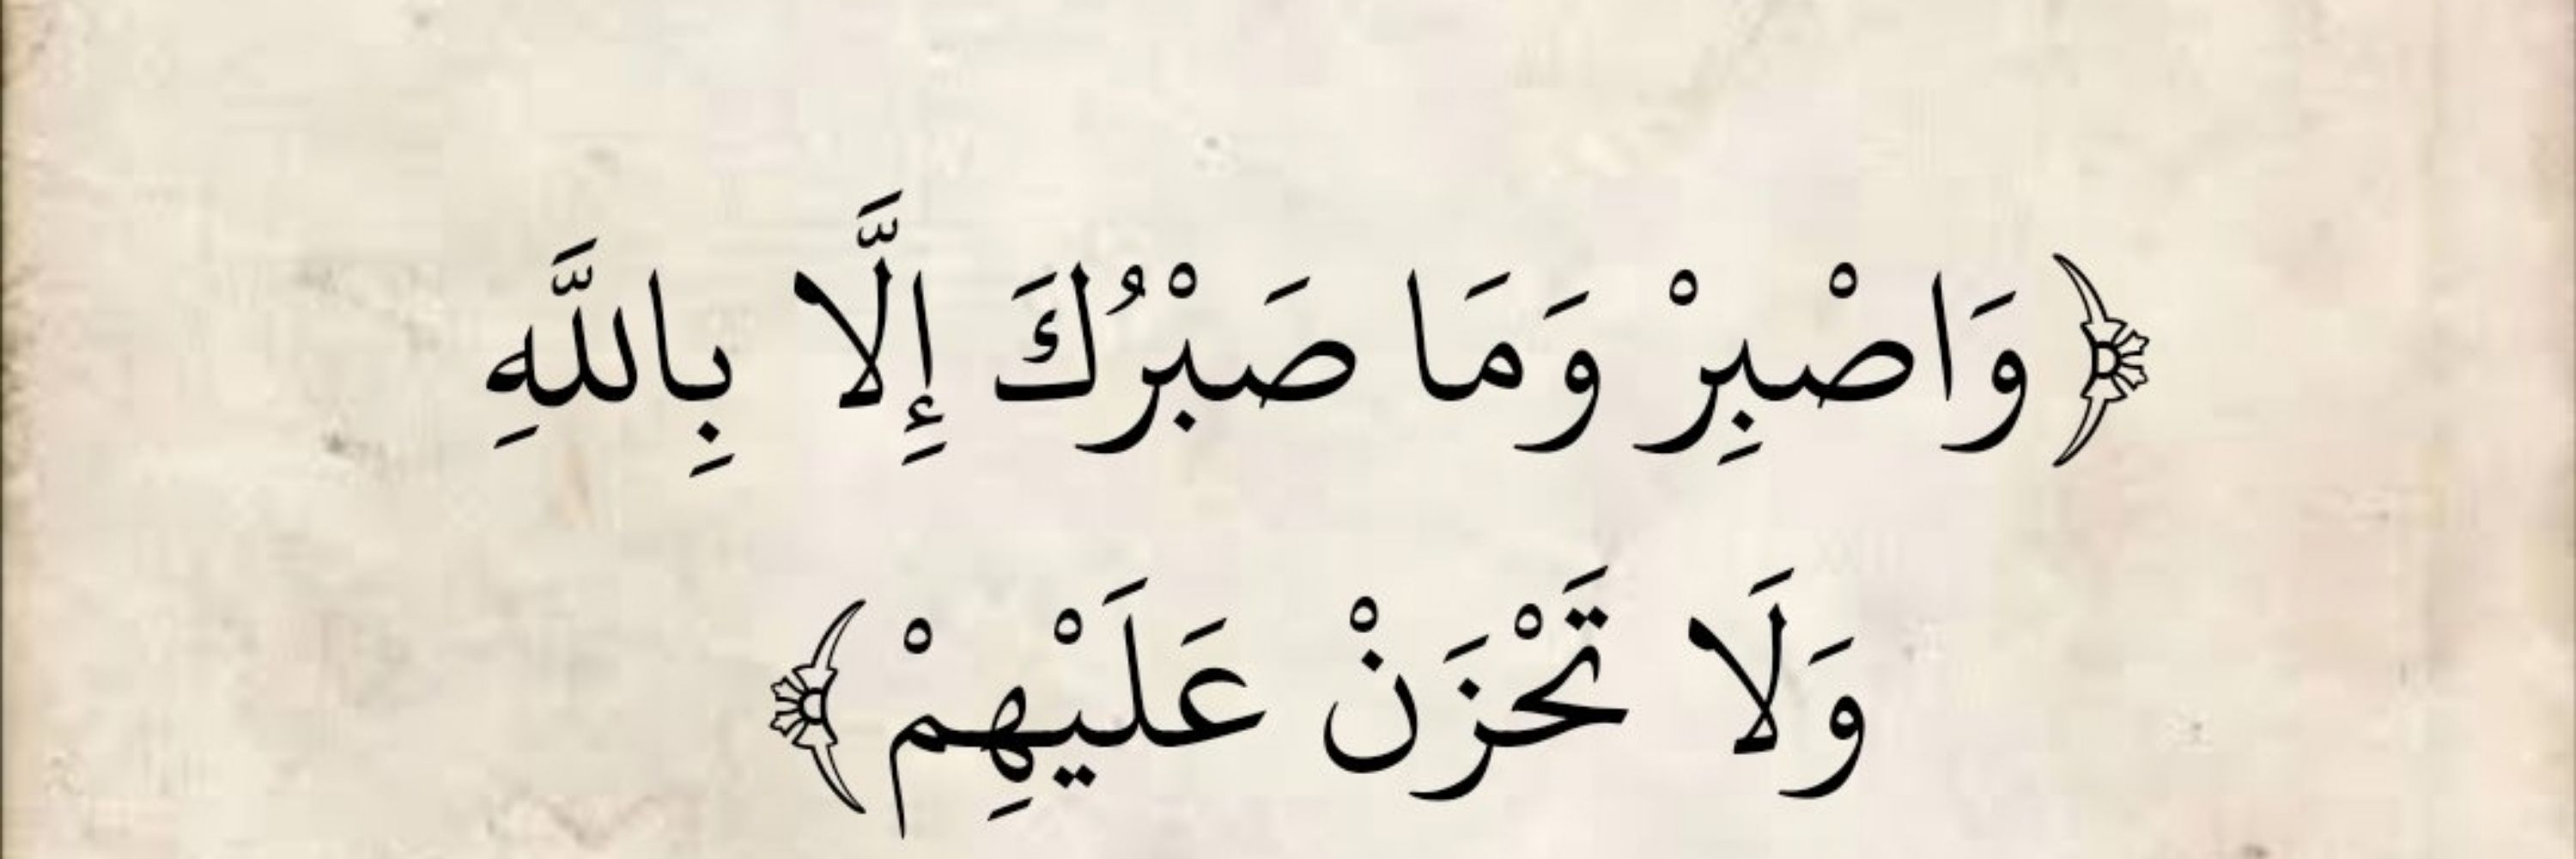 ﴿وَاصْبِرْ وَمَا صَبْرُكَ إِلَّا بِاللَّهِ
وَلَا تَحْزَنْ عَلَيْهِمْ﴾